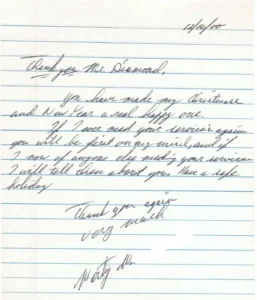 12/16/00
Thank you Mr. Diamond,
You have made my Christmas
and New Year a real happy one.
If I ever need your services again
you will be first on my mind, and if
I now of anyone else needing your services
I will tell them about you. Have a safe
holiday
Thank you again
very much